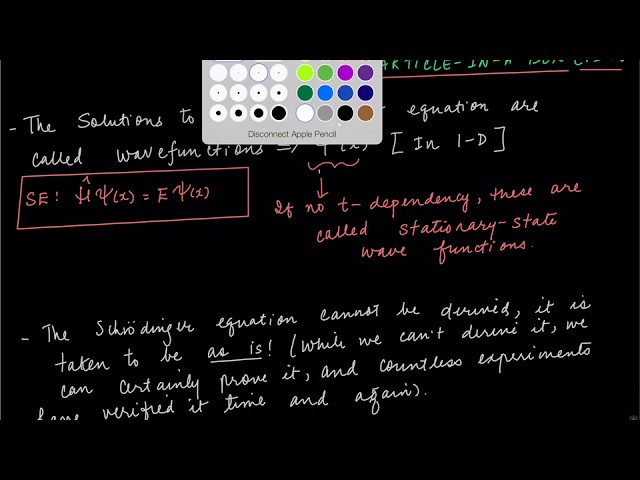 PARTICLE-IN-A
- The Solutions to equation are
called wavefunctions => Ψ(x) [In 1-D]
Disconnect Apple Pencil
SE: ĤΨ(x) = EΨ(x)
If no t-dependency, these are
called stationary-state
wave functions.
- The Schrödinger equation cannot be derived, it is
taken to be as is! (While we can't derive it, we
can certainly prove it, and countless experiments
have verified it time and again).